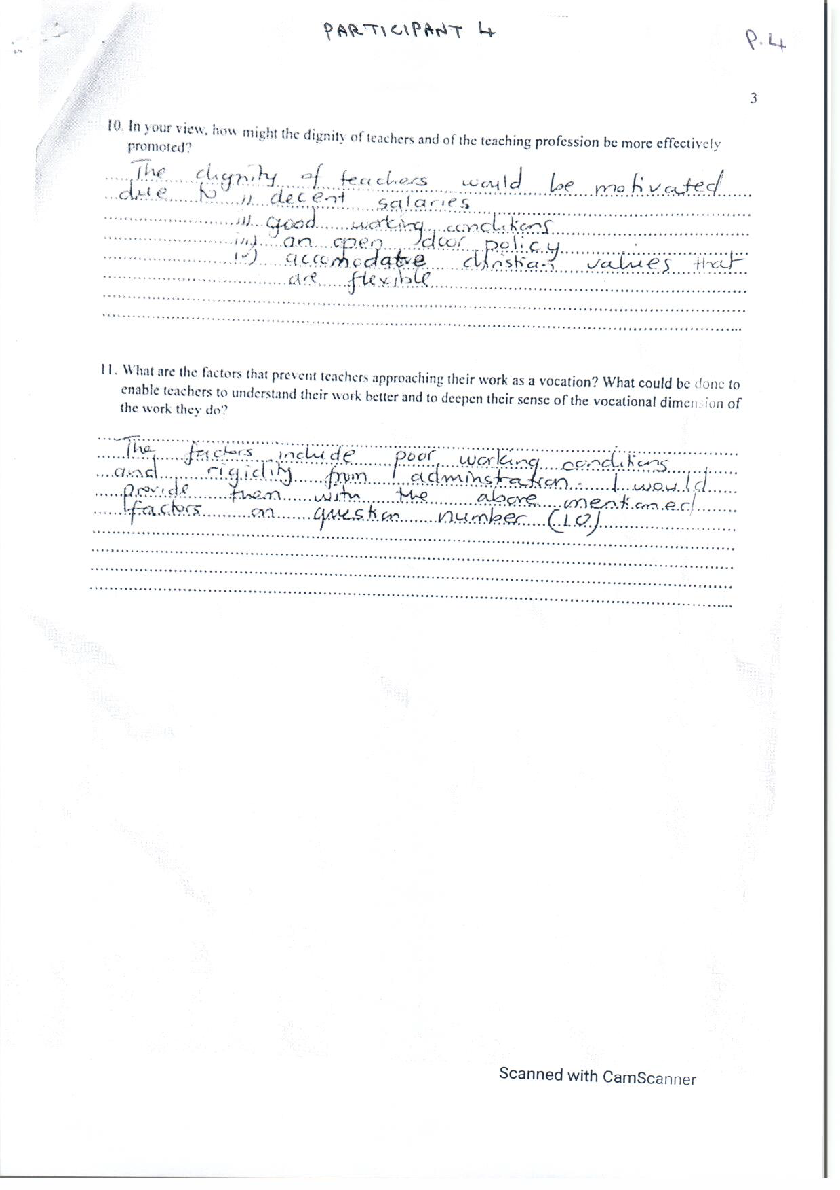 PARTICIPANT 4
P.4
3
10. In your view, how might the dignity of teachers and of the teaching profession be more effectively
promoted?
The dignity of teachers would be motivated
due to i) decent salaries
ii) good working conditions
iii) an open door policy
iv) accomodative christian values that
are flexible
11. What are the factors that prevent teachers approaching their work as a vocation? What could be done to
enable teachers to understand their work better and to deepen their sense of the vocational dimension of
the work they do?
The factors include poor working conditions
and rigidity from adminstration. I would
provide them with the above mentioned
factors on question number (10)
Scanned with CamScanner